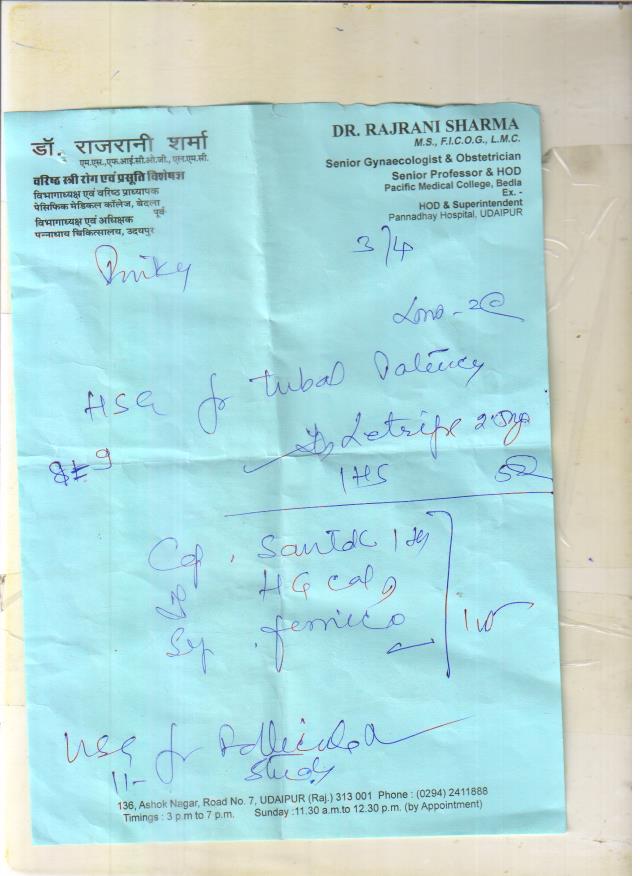 डॉ. राजरानी शर्मा
एम.एस.,एफ.आई.सी.ओ.जी., एल.एम.सी.
वरिष्ठ स्त्री रोग एवं प्रसूति विशेषज्ञ
विभागाध्यक्ष एवं वरिष्ठ प्राध्यापक
पेसिफिक मेडिकल कॉलेज, बेदला
पूर्व
विभागाध्यक्ष एवं अधिक्षक
पन्नाधाय चिकित्सालय, उदयपुर
DR. RAJRANI SHARMA
M.S., F.I.C.O.G., L.M.C.
Senior Gynaecologist & Obstetrician
Senior Professor & HOD
Pacific Medical College, Bedla
Ex. -
HOD & Superintendent
Pannadhay Hospital, UDAIPUR
3/4
HSG for tubal Patency
1 HS
Cap.
HG cal
Sy.
USG for Follicular
11- Study
136, Ashok Nagar, Road No. 7, UDAIPUR (Raj.) 313 001 Phone : (0294) 2411888
Timings : 3 p.m to 7 p.m. Sunday :11.30 a.m.to 12.30 p.m. (by Appointment)